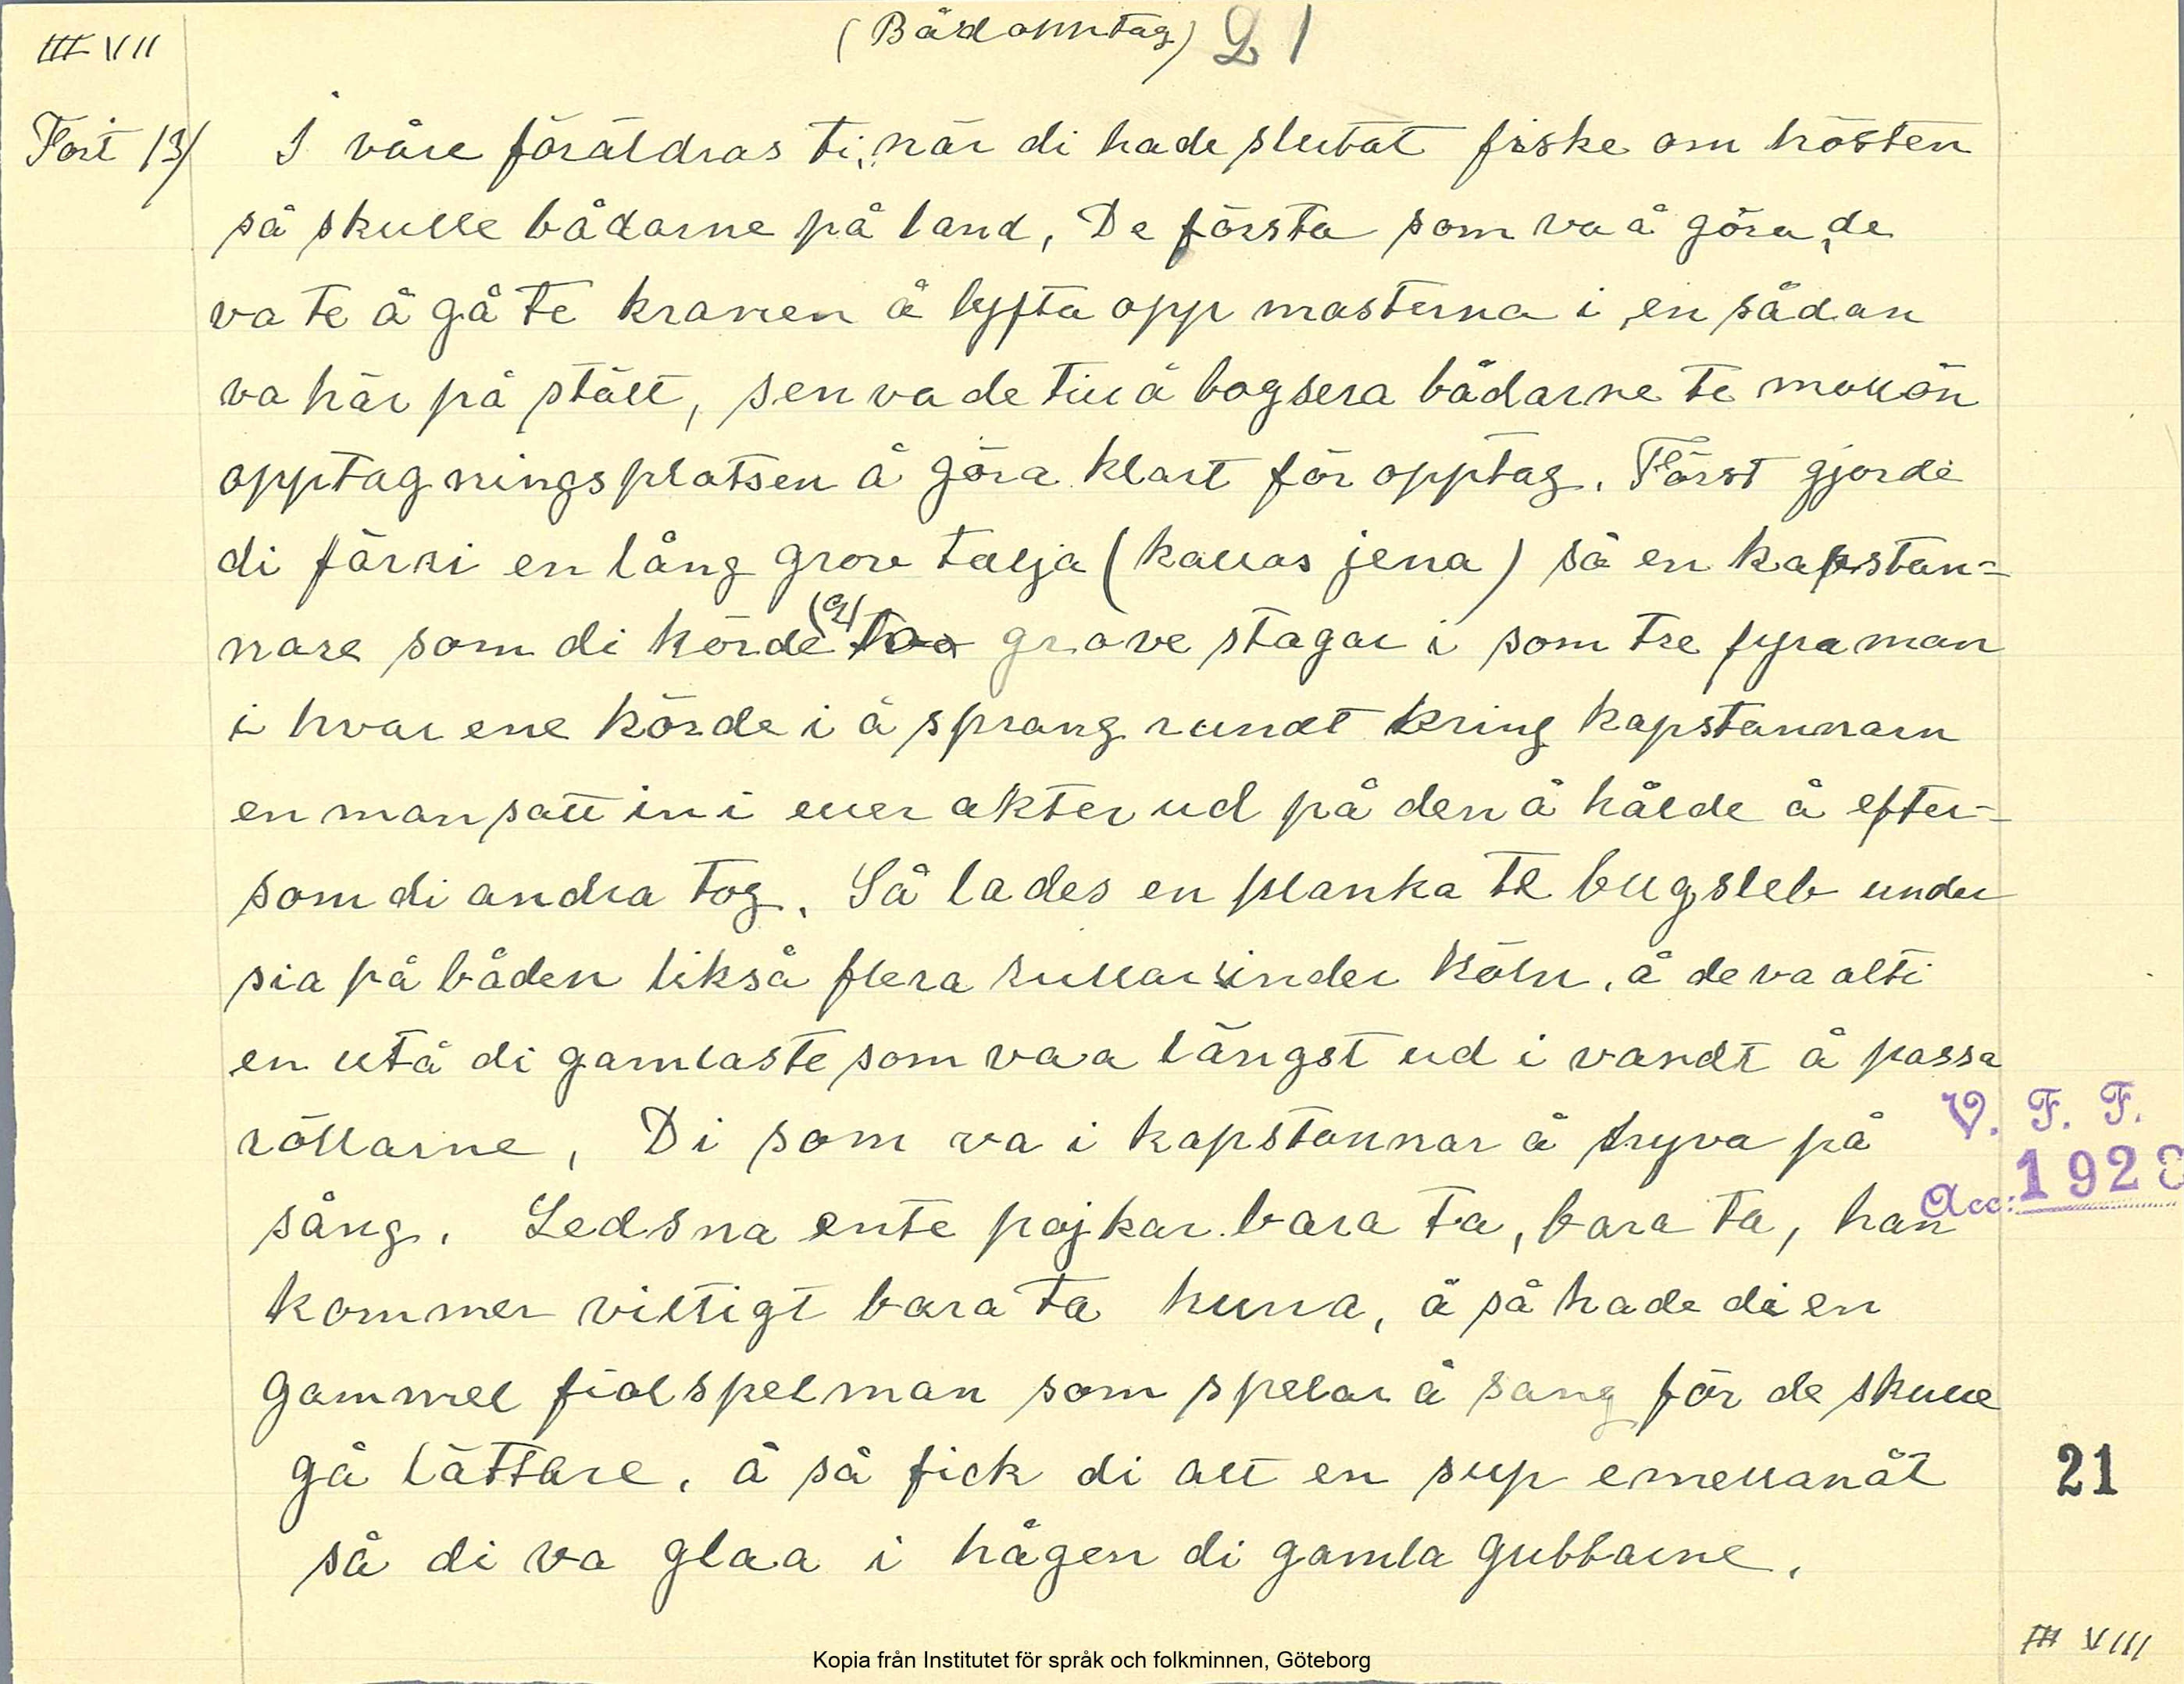 III VII
(Bådopptag) L 1
Fort 13/ I våre föräldras ti, när di hade slutat fiske om hösten
så skulle bådarne på land, De första som va å göra, de
va te å gå te kranen å lyfta opp masterna i, en sådan
va här på ställ, sen va de till å bogsera bådarne te mollön
opptagningsplatsen å göra klart för opptag. Först gjorde
di färri en lång grov talja (kallas jena) så en kapstan-
nare som di körde (2) grove stagar i som tre fyra man
i hvar ene körde i å sprang rundt kring kapstannarn
en man satt in i eller akter ud på den å hålde å efter-
som di andra tog. Så lades en planka te bugsleb under
sia på båden likså flera rullar under köln, å de va alti
en utå di gamlaste som vaa längst ud i vandt å passa
röllarne, Di som va i kapstannar å skyva på
sång. Ledsna ente pojkar bara ta, bara ta, han
kommer villigt bara ta hurra, å så hade di en
gammel fiolspelman som spelar å sang för de skulle
gå lättare, å så fick di all en sup emellanåt
så di va glaa i hågen di gamla gubbarne.
V. F. F.
Acc: 192
21
III VIII
Kopia från Institutet för språk och folkminnen, Göteborg